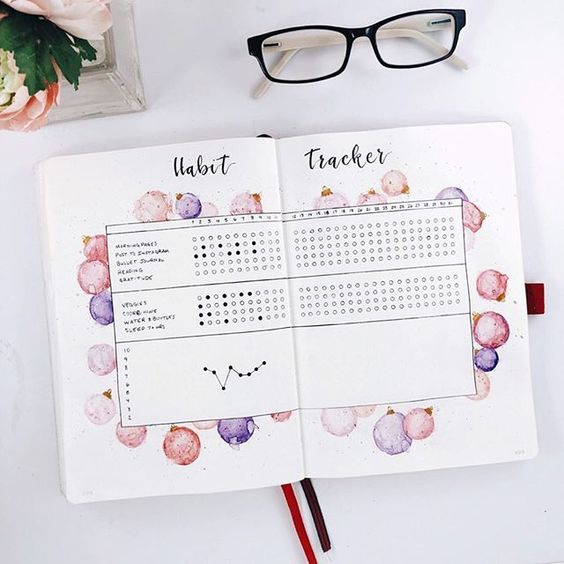 Habit Tracker
1 2 3 4 5 6 7 8 9 10 11 12 13 14 15 16 17 18 19 20 21 22 23 24 25 26 27 28 29 30 31
MORNING PAGES
POST TO INSTAGRAM
BULLET JOURNAL
READING
GRATITUDE
VEGGIES
WATER BOTTLES
SLEEP HRS
10
9
8
7
6
5
4
3
2